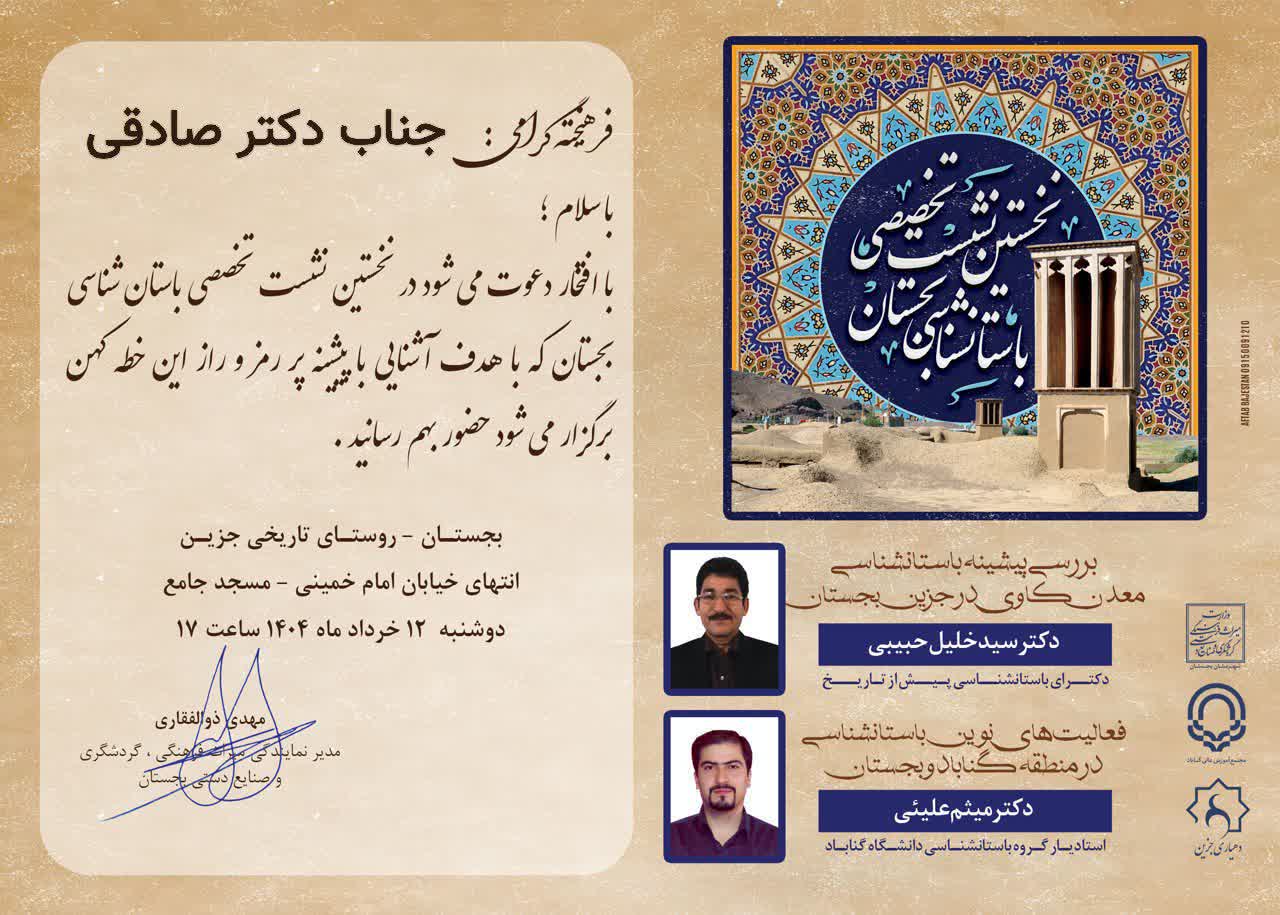 فرهیخته گرامی : جناب دکتر صادقی
باسلام ؛
با افتخار دعوت می شود در نخستین نشست تخصصی باستان شناسی
بجستان که با هدف آشنایی با پیشینه پر رمز و راز این خطه کهن
برگزار می شود حضور بهم رسانید .
بجستان - روستای تاریخی جزین
انتهای خیابان امام خمینی - مسجد جامع
دوشنبه ۱۲ خرداد ماه ۱۴۰۴ ساعت ۱۷
مهدی ذوالفقاری
مدیر نمایندگی میراث فرهنگی ، گردشگری
و صنایع دستی بجستان
نخستین نشست تخصصی
باستانشناسی بجستان
AFTAB BAJESTAN 09150091210
بررسی پیشینه باستانشناسی
معدن کاوی در جزین بجستان
دکتر سید خلیل حبیبی
دکترای باستانشناسی پیش از تاریخ
فعالیت‌های نوین باستانشناسی
در منطقه گناباد و بجستان
دکتر میثم علیئی
استادیار گروه باستانشناسی دانشگاه گناباد
وزارت
میراث فرهنگی
گردشگری و صنایع دستی
شهرستان بجستان
مجتمع آموزش عالی گناباد
دهیاری جزین